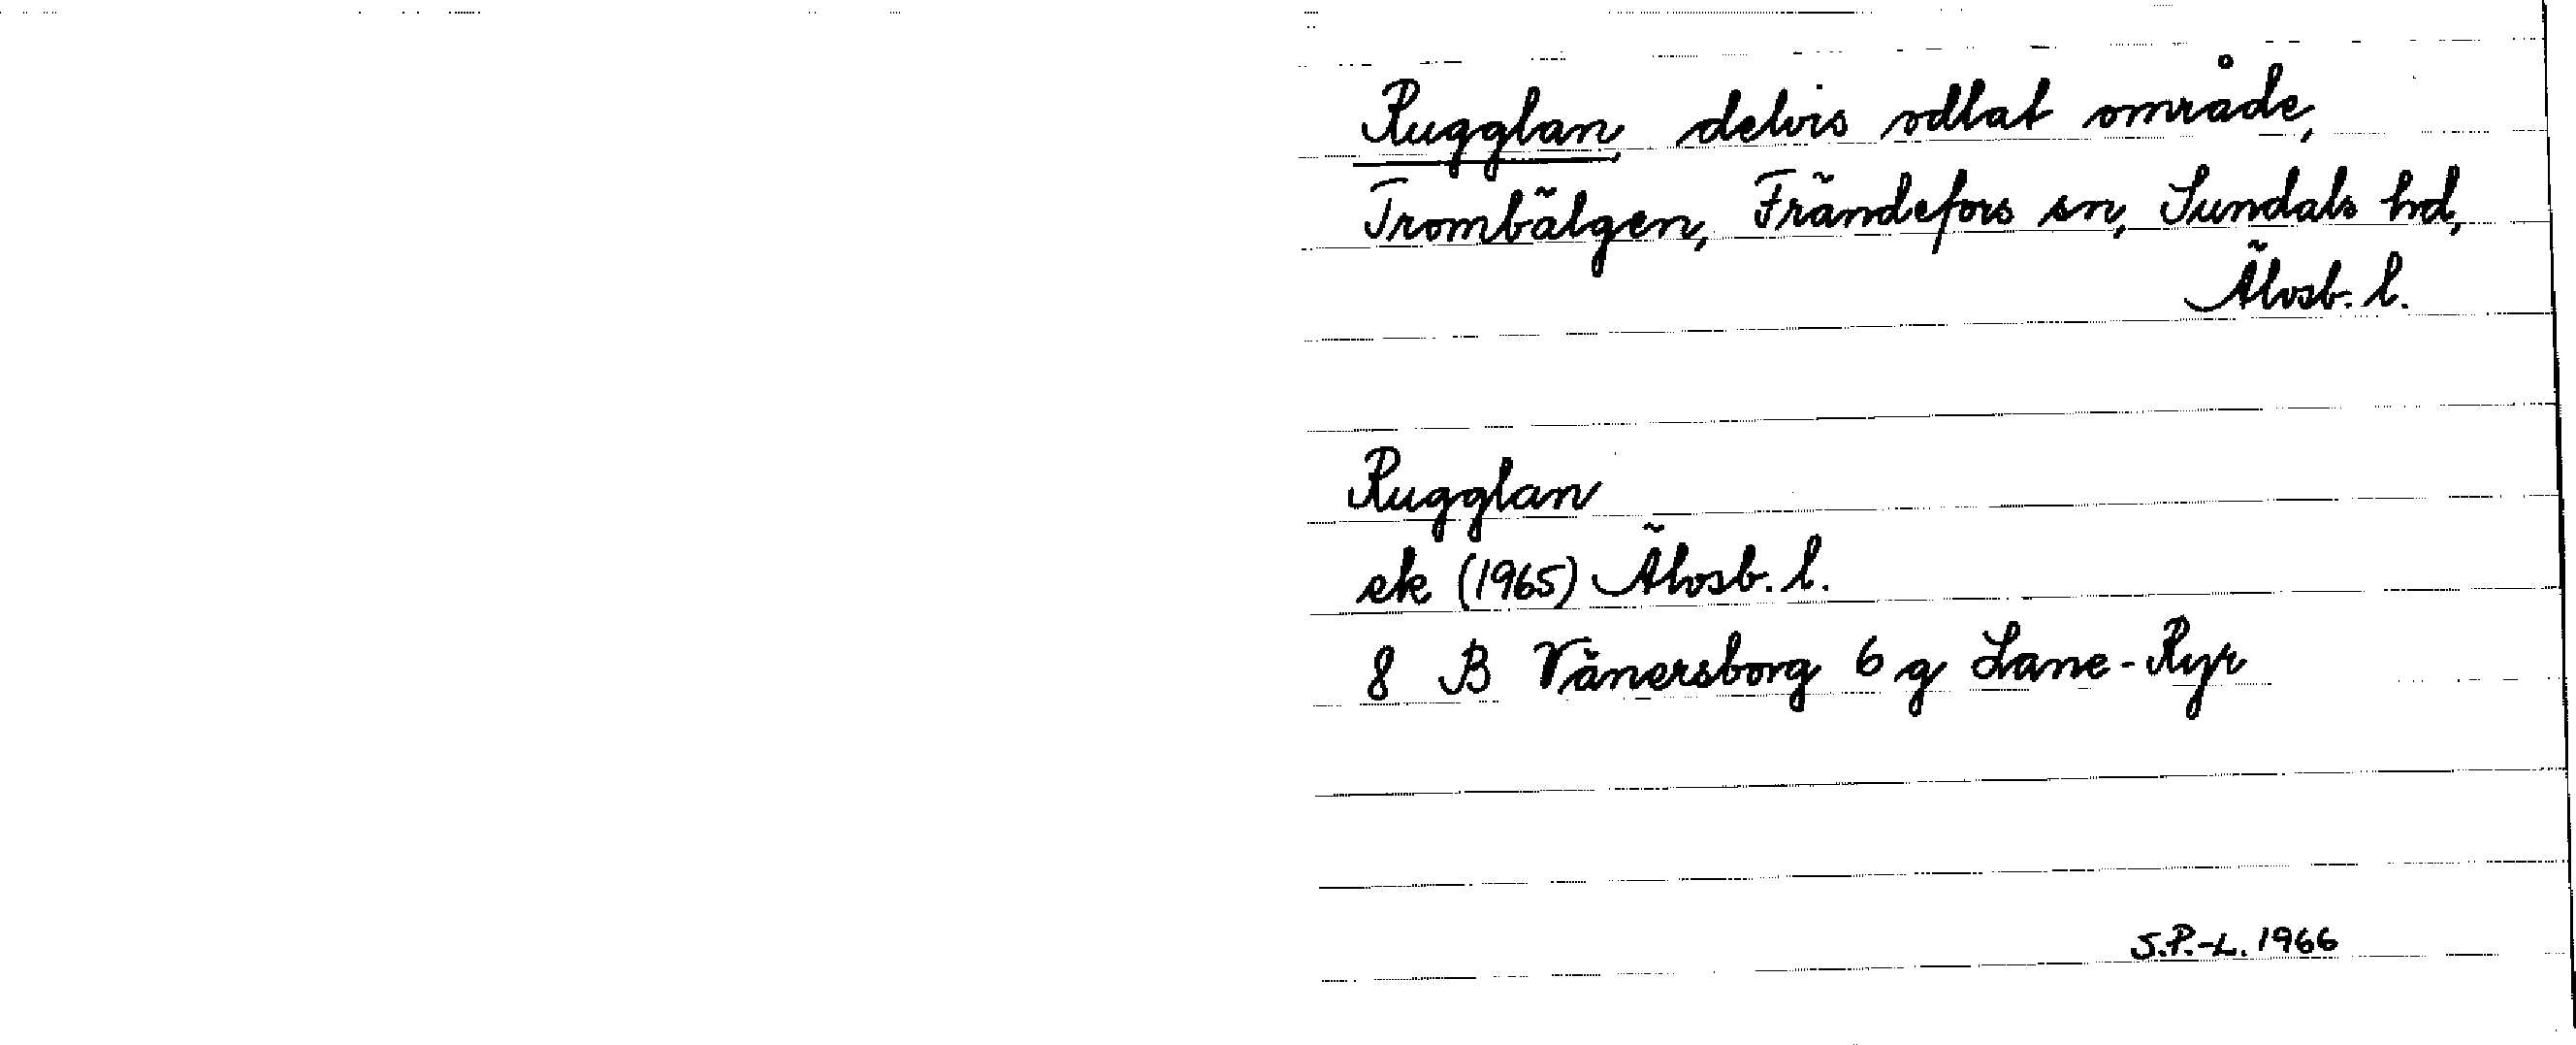 Rugglan, delvis odlat område,
Trombälgen, Frändefors sn, Sundals hd,
Älvsb. l.
Rugglan
ek (1965) Älvsb. l.
8 B Vänersborg 6 g Lane-Ryr
S.P.-L. 1966